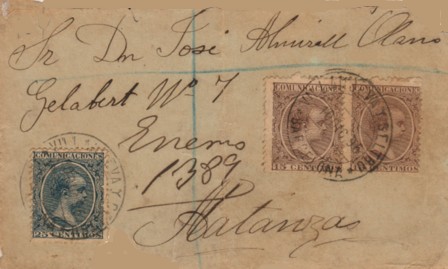 Sr Dn José Almirall Llano
Gelabert Nº 7
Enero
1389
Matanzas
COMUNICACIONES
15 CENTIMOS
COMUNICACIONES
15 CENTIMOS
COMUNICACIONES
25 CENTIMOS